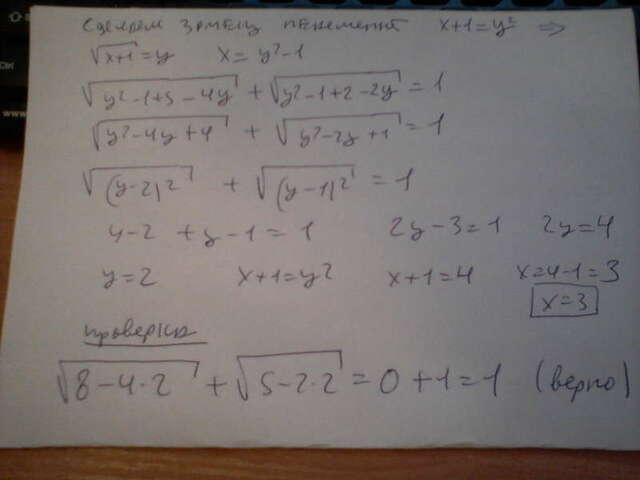 Сделаем замену переменной x+1=y² ⇒
√(x+1)=y x=y²-1
√(y²-1+5-4y) + √(y²-1+2-2y) = 1
√(y²-4y+4) + √(y²-2y+1) = 1
√((y-2)²) + √((y-1)²) = 1
y-2 + y-1 = 1 2y-3=1 2y=4
y=2 x+1=y² x+1=4 x=4-1=3
x=3
проверка
√(8-4·2) + √(5-2·2) = 0+1=1 (верно)